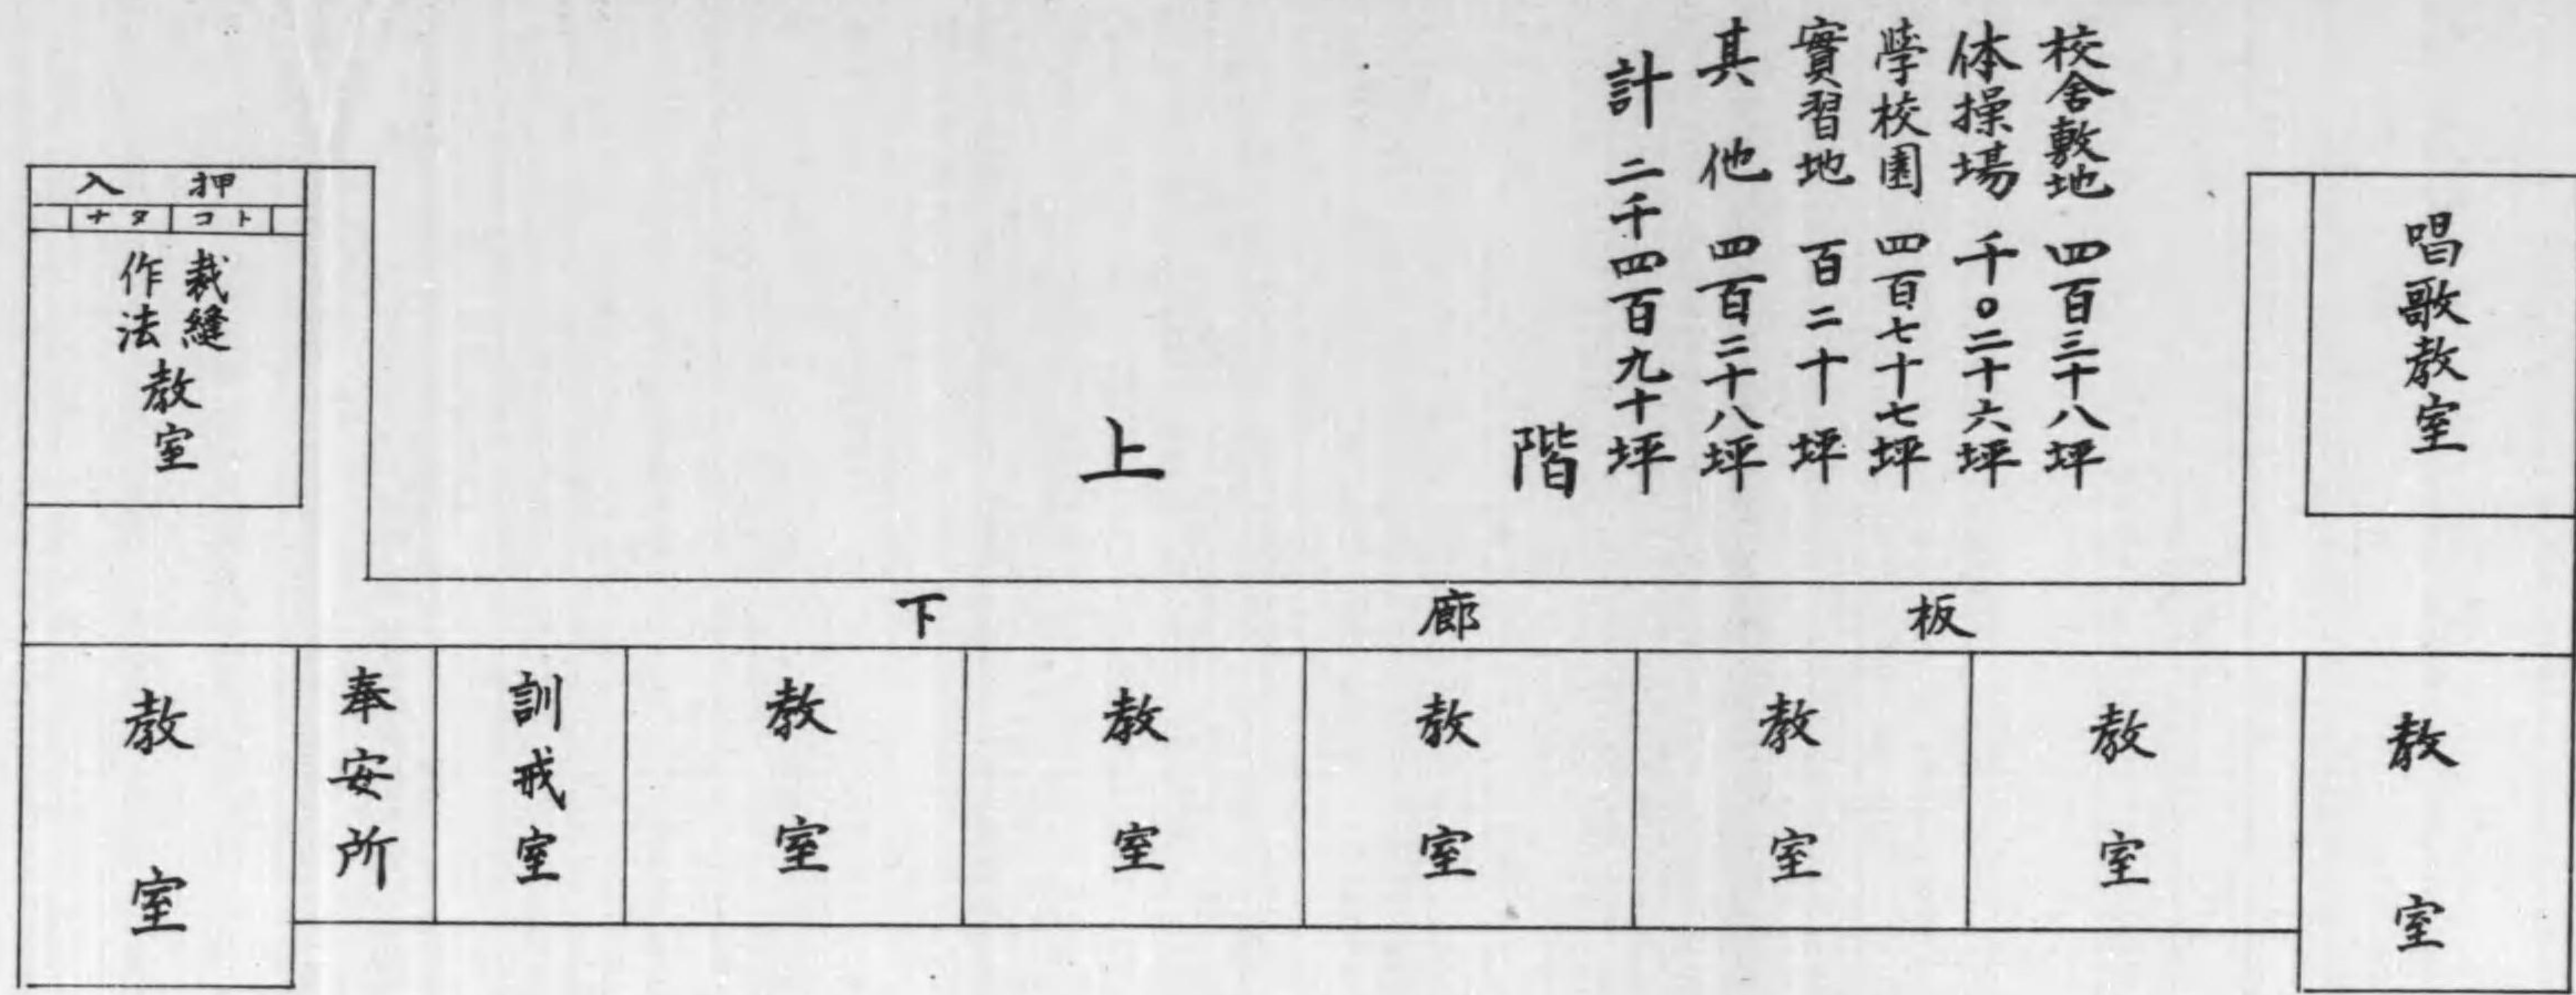 校舍敷地 四百三十八坪
体操場 千〇二十六坪
學校園 四百七十七坪
實習地 百二十坪
其他 四百二十八坪
計 二千四百九十坪
階上
唱歌教室
押入
トコ
タナ
裁縫
作法
教室
板廊下
教室
教室
教室
教室
教室
教室
訓戒室
奉安所
教室